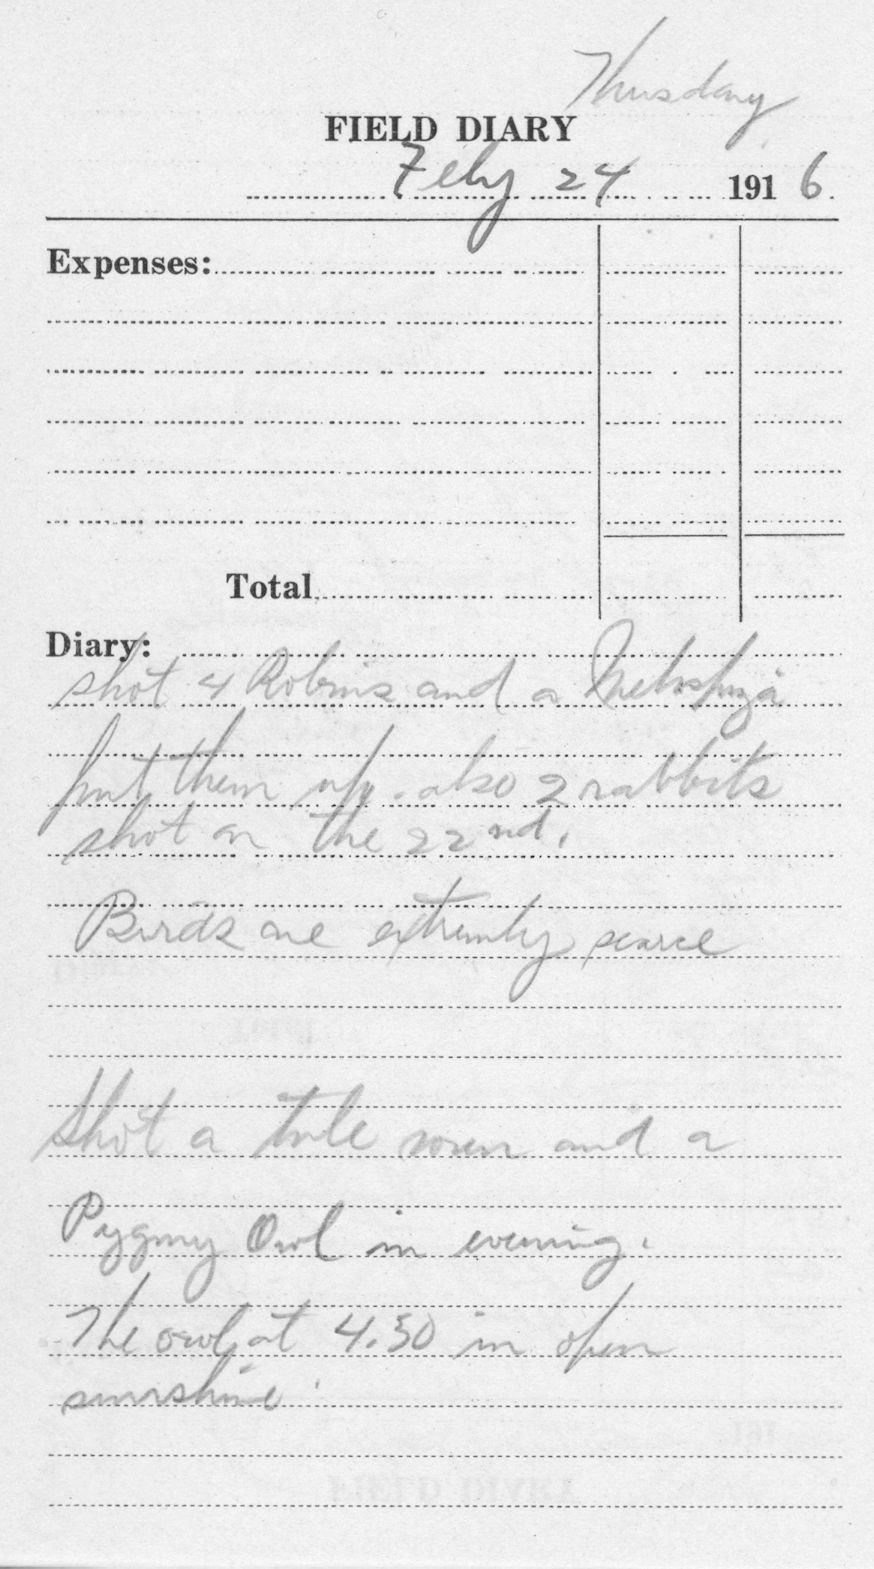 Thursday
FIELD DIARY
Feby 24 1916.
Expenses:
Total
Diary:
shot 4 Robins and a Melospiza
put them up. also 2 rabbits
shot on the 22nd.
Birds are extremely scarce
Shot a tule wren and a
Pygmy Owl in evening.
The owl at 4.30 in open
sunshine.